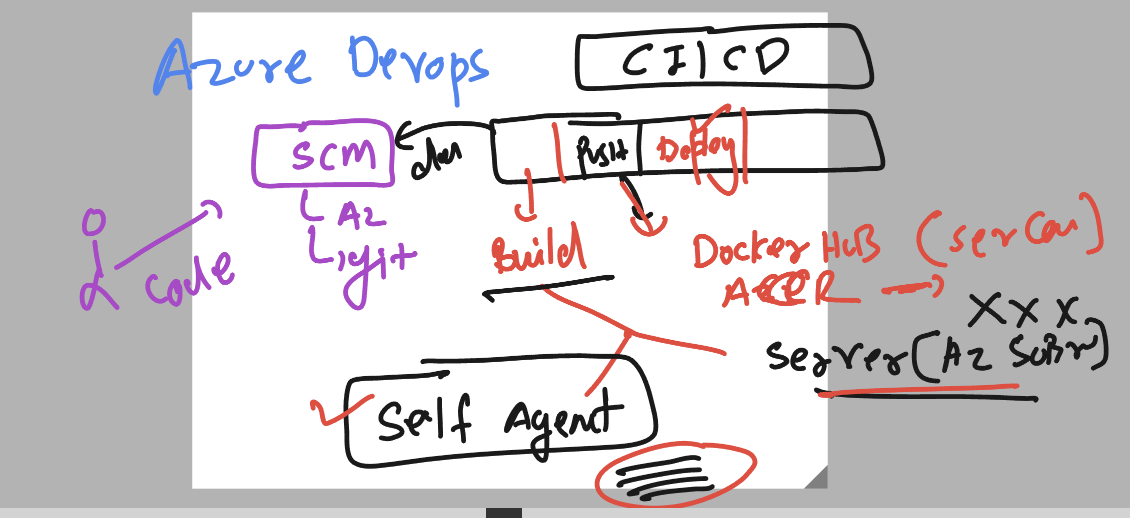 Azure Devops
CI/CD
SCM
Push
Deploy
Az
git
code
Build
Docker HuB (serCon)
ACR
XXX
Server (Az SuBn)
Self Agent